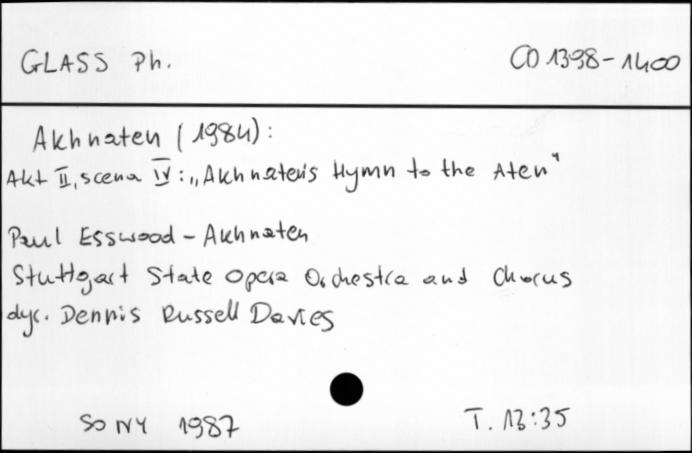 GLASS Ph.
CD 1398-1400
Akhnaten (1984):
Akt II, scena IV: „Akhnaten's Hymn to the Aten"
Paul Esswood - Akhnaten
Stuttgart State Opera Orchestra and Chorus
dyr. Dennis Russell Davies
SONY 1987
T. 13:35